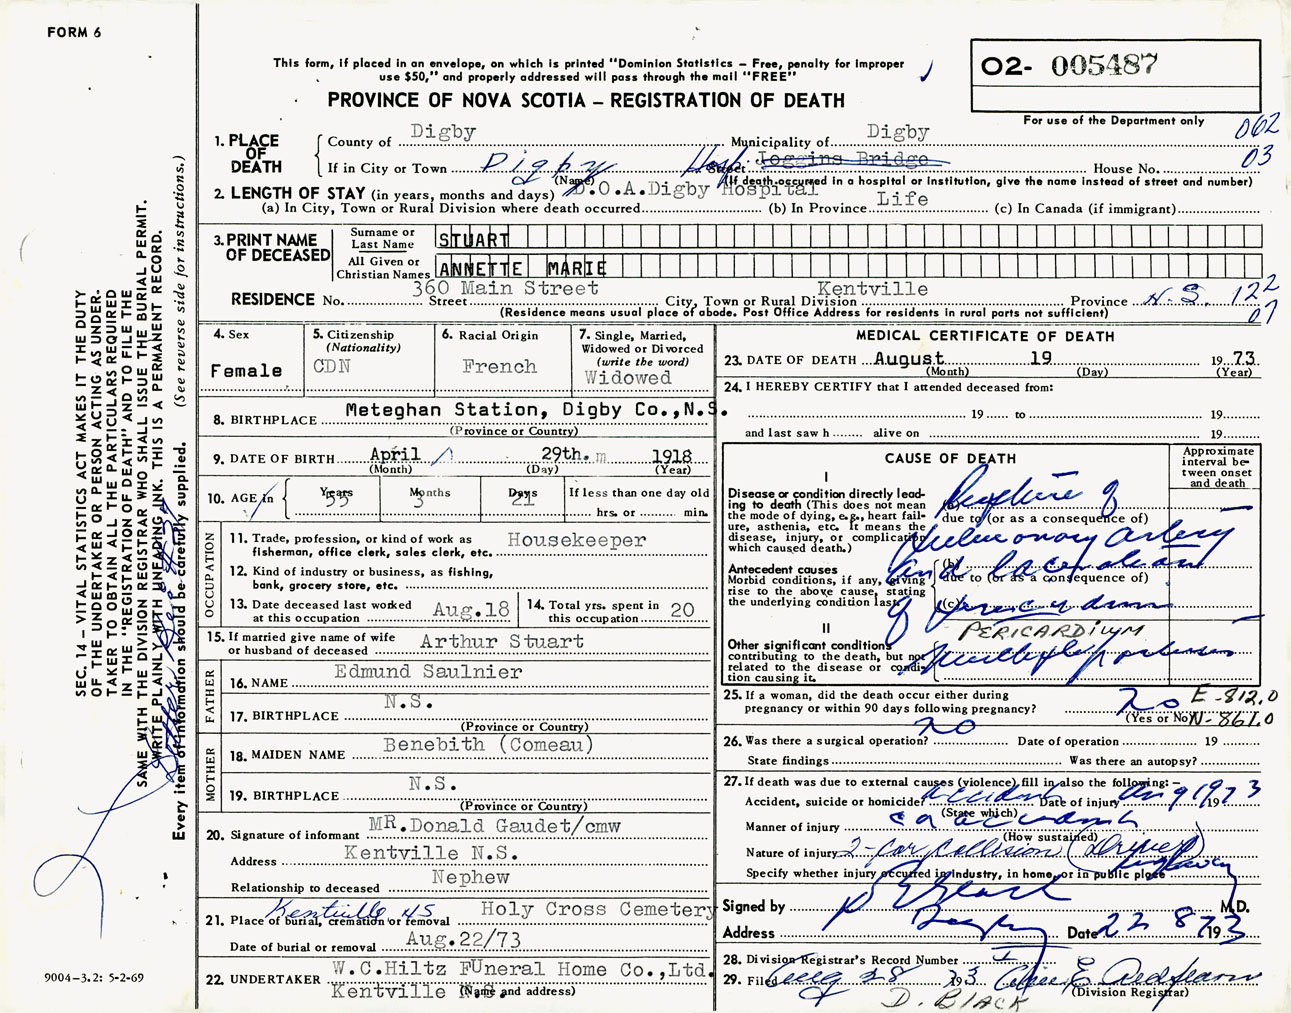 FORM 6
This form, if placed in an envelope, on which is printed "Dominion Statistics – Free, penalty for improper
use $50," and properly addressed will pass through the mail "FREE"
PROVINCE OF NOVA SCOTIA – REGISTRATION OF DEATH
O2- 005487
For use of the Department only
062
03
1. PLACE OF DEATH
County of Digby Municipality of Digby
If in City or Town Digby Hosp. Street Joggins Bridge House No.
(Name) (If death occurred in a hospital or institution, give the name instead of street and number)
2. LENGTH OF STAY (in years, months and days) D.O.A. Digby Hospital
(a) In City, Town or Rural Division where death occurred (b) In Province Life (c) In Canada (if immigrant)
3. PRINT NAME OF DECEASED
Surname or Last Name STUART
All Given or Christian Names ANNETTE MARIE
RESIDENCE No. 360 Main Street Street City, Town or Rural Division Kentville Province N.S. 122
07
(Residence means usual place of abode. Post Office Address for residents in rural parts not sufficient)
4. Sex Female
5. Citizenship (Nationality) CDN
6. Racial Origin French
7. Single, Married, Widowed or Divorced (write the word) Widowed
8. BIRTHPLACE Meteghan Station, Digby Co.,N.S.
(Province or Country)
9. DATE OF BIRTH April 29th. 1918
(Month) (Day) (Year)
10. AGE in Years 55 Months 3 Days 21 If less than one day old
hrs. or min.
OCCUPATION
11. Trade, profession, or kind of work as fisherman, office clerk, sales clerk, etc. Housekeeper
12. Kind of industry or business, as fishing, bank, grocery store, etc.
13. Date deceased last worked at this occupation Aug.18
14. Total yrs. spent in this occupation 20
15. If married give name of wife or husband of deceased Arthur Stuart
FATHER
16. NAME Edmund Saulnier
17. BIRTHPLACE N.S.
(Province or Country)
MOTHER
18. MAIDEN NAME Benebith (Comeau)
19. BIRTHPLACE N.S.
(Province or Country)
20. Signature of informant MR.Donald Gaudet/cmw
Address Kentville N.S.
Relationship to deceased Nephew
21. Place of burial, cremation or removal Kentville Holy Cross Cemetery
Date of burial or removal Aug.22/73
22. UNDERTAKER W.C.Hiltz FUneral Home Co.,Ltd.
Kentville N.S. (Name and address)
MEDICAL CERTIFICATE OF DEATH
23. DATE OF DEATH August 19 1973
(Month) (Day) (Year)
24. I HEREBY CERTIFY that I attended deceased from:
19 to 19
and last saw h alive on 19
CAUSE OF DEATH
Approximate interval between onset and death
I
Disease or condition directly leading to death (This does not mean the mode of dying, e.g., heart failure, asthenia, etc. It means the disease, injury, or complication which caused death.)
(a) Rupture of
due to (or as a consequence of)
Pulmonary artery
Antecedent causes
Morbid conditions, if any, giving rise to the above cause, stating the underlying condition last.
(b) and laceration
due to (or as a consequence of)
(c) of pericardium
PERICARDIUM
II
Other significant conditions contributing to the death, but not related to the disease or condition causing it.
Multiple
25. If a woman, did the death occur either during pregnancy or within 90 days following pregnancy? no
(Yes or No)
E-812.0
N-861.0
26. Was there a surgical operation? no Date of operation 19
State findings Was there an autopsy?
27. If death was due to external causes (violence) fill in also the following:–
Accident, suicide or homicide? accident Date of injury Aug 19 1973
(State which)
Manner of injury car accident
(How sustained)
Nature of injury 2-car collision (Driver)
highway
Specify whether injury occurred in industry, in home, or in public place
Signed by M.D.
Address Digby Date 22 8 1973
28. Division Registrar's Record Number
29. Filed Aug 28 1973
(Division Registrar)
D. BLACK
SEC. 14 – VITAL STATISTICS ACT MAKES IT THE DUTY
OF THE UNDERTAKER OR PERSON ACTING AS UNDER-
TAKER TO OBTAIN ALL THE PARTICULARS REQUIRED
IN THE "REGISTRATION OF DEATH" AND TO FILE THE
SAME WITH THE DIVISION REGISTRAR WHO SHALL ISSUE THE BURIAL PERMIT.
WRITE PLAINLY WITH UNFADING INK. THIS IS A PERMANENT RECORD.
Every item of information should be carefully supplied. (See reverse side for instructions.)
9004–3.2: 5-2-69